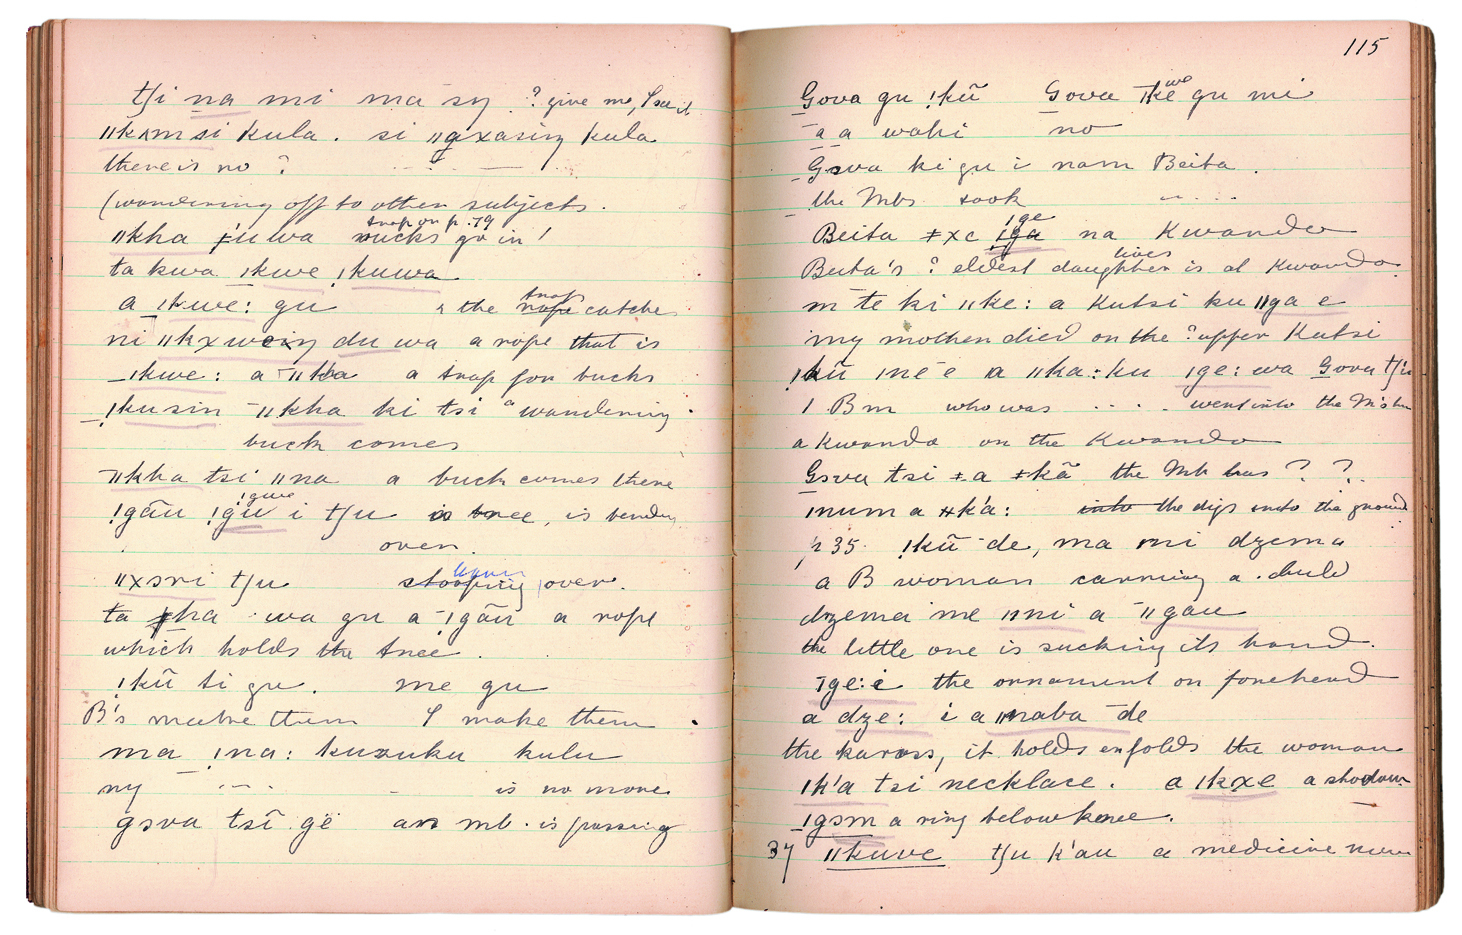 tʃi na mi ma sŋ ? give me, I see it
ǁkʌm si kula . si ǁgxasiŋ kula
there is no ?
(wandering off to other subjects.
trap on p. 79
ǁkha ǂ'u wa bucks go in /
ta kwa ǀkwe ǃkuwa
a ǀkwe: gu the rope catches
trap
ni ǁkxweiŋ du wa a rope that is
ǀkwe: a ǁkha a trap for bucks
ǀkusin ǁkha ki tsi a wandering
buck comes
ǁkha tsi ǁna a buck comes there
ǃgãũ ǃgu i tʃu tree, is bending
ǃgwe
over.
ǁxɔri tʃu stooping over.
ta ha wa gu a ǃgãũ a rope
which holds the tree .
ǃkũ ti gu . me gu
B's make them I make them
ma ǃna: kuzuku kulu
my is no more
gɔva tsĩ gë an mb. is passing
115
Gova gu ǃkũ Gova ke gu mi
we
a a wohi no
Gɔva ki gu i nam Beita .
the Mbs took
Beita ǂxe ǃga na Kwando
ǀge
Beita's ? eldest daughter is at Kwando
lives
m te ki ǁke: a Kutsi ku ǁga e
my mother died on the ? upper Kutsi
ǃkũ ǀne e a ǁka: ku ǀge: wa Gova tʃu
1 Bm who was . . . . went into the M's hu
a Kwando on the Kwando
Gɔva tsi ǂa ǂkã the Mb has ? ?
ǀnum a ǂk'a: into the digs into the ground
35. ǃkũ de, ma mi dzema
a B woman carrying a child
dzema me ǁni a ǁgau
the little one is sucking its hand.
ǀge: i the ornament on forehead
a dze: i a ǁnaba de
the kaross, it holds enfolds the woman
ǀk'a tsi necklace . a ǀkxe a shadow
ǀgɔm a ring below knee.
37 ǁkuve tʃu k'au a medicine man